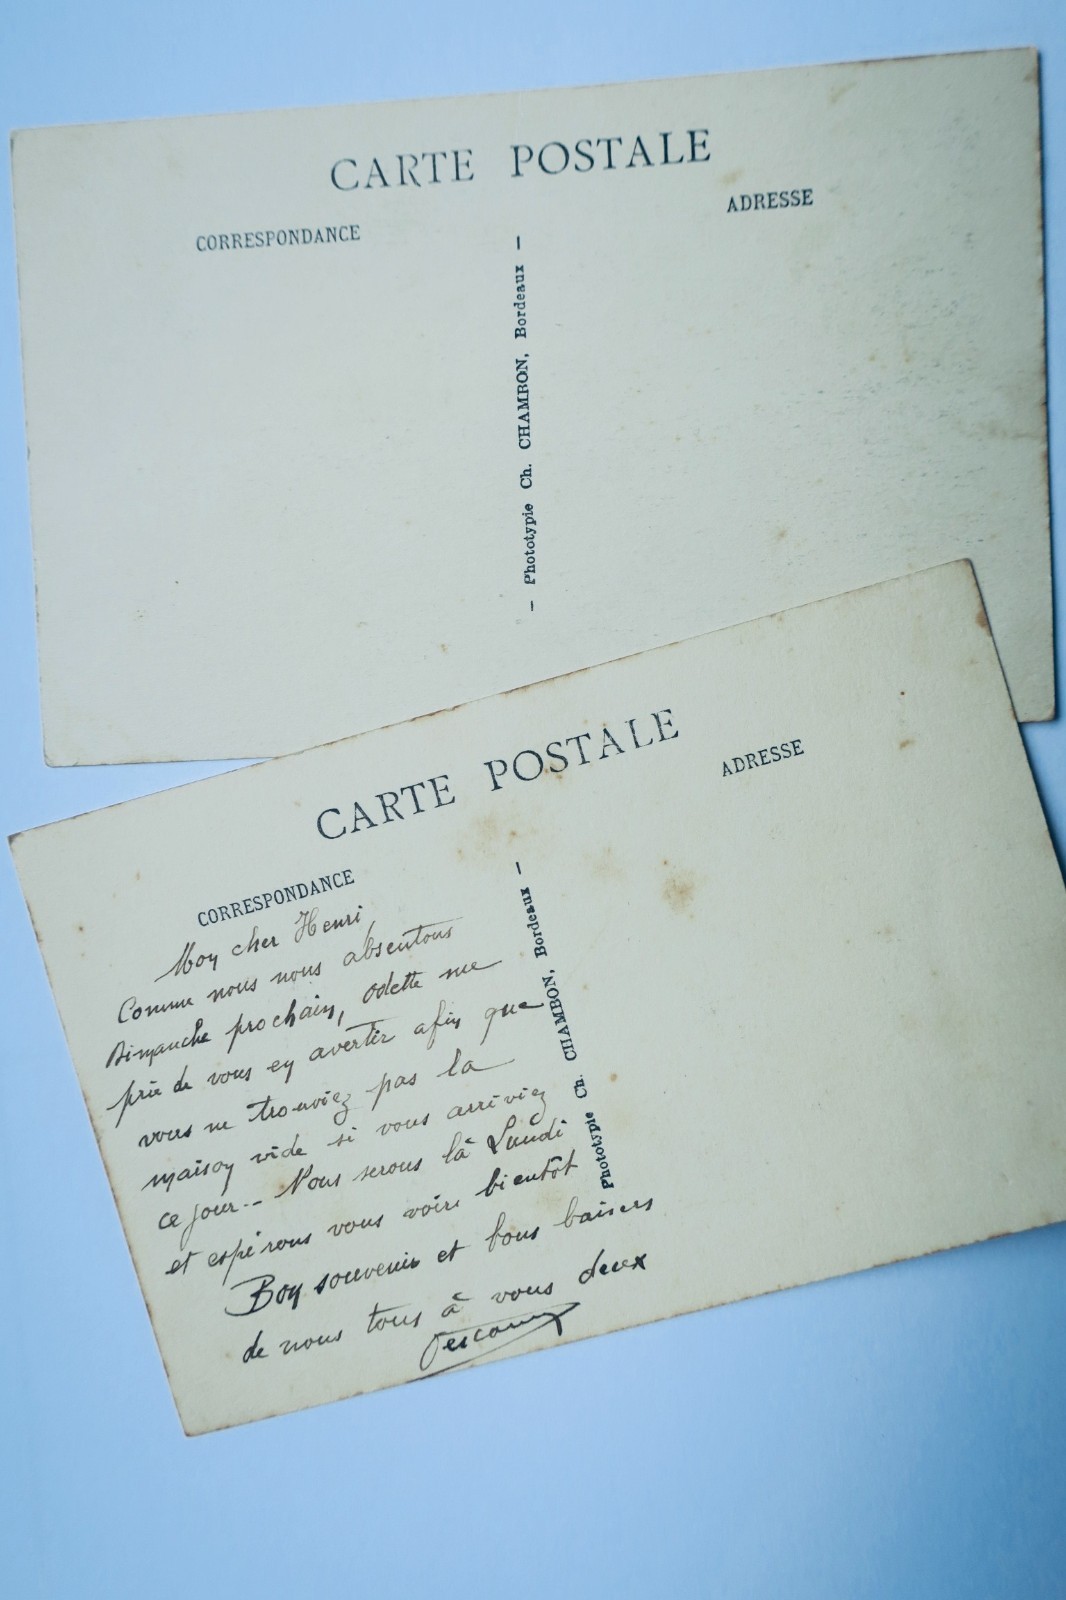 CARTE POSTALE
CORRESPONDANCE
ADRESSE
— Phototypie Ch. CHAMBON, Bordeaux —
CARTE POSTALE
CORRESPONDANCE
ADRESSE
Phototypie Ch. CHAMBON, Bordeaux —
Mon cher Henri,
Comme nous nous absentons
Dimanche prochain, Odette me
prie de vous en avertir afin que
vous ne trouviez pas la
maison vide si vous arriviez
ce jour.. Nous serons là Lundi
et espérons vous voir bientôt
Bon souvenir et bons baisers
de nous tous à vous deux